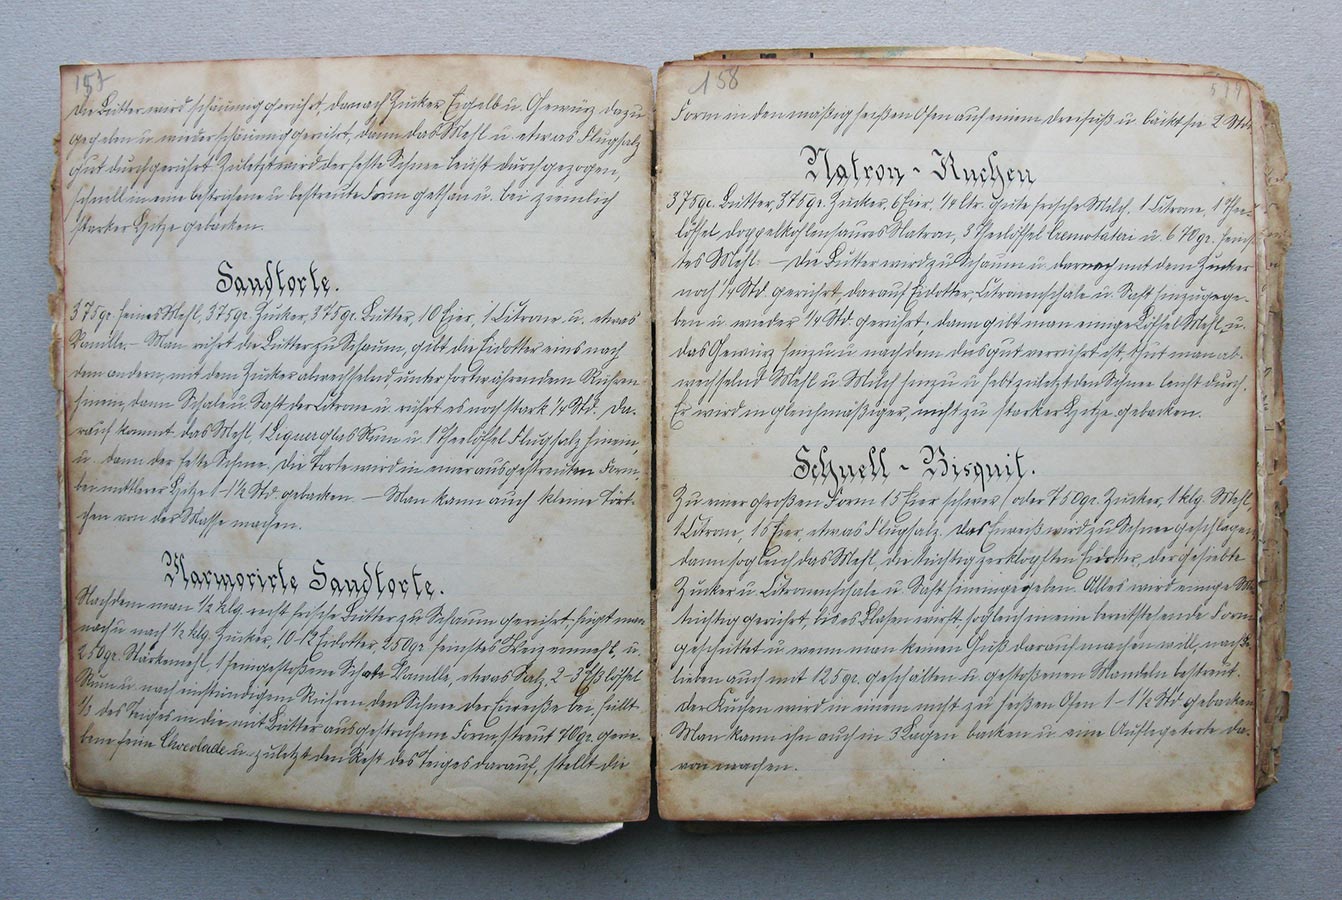 157
die Butter wird schaumig gerührt, danach Zucker Eigelb u. Gewürz dazu
gegeben u. wieder schaumig gerührt, dann das Mehl u. etwas Flugsalz
gut durchgerührt. Zuletzt wird der feste Schnee leicht durchgezogen,
schnell in eine bestrichene u. bestreute Form gethan u. bei ziemlich
starker Hitze gebacken.
Sandtorte.
375gr. feines Mehl, 375gr. Zucker, 375gr. Butter, 10 Eier, 1 Citrone u. etwas
Vanille. – Man rührt die Butter zu Schaum, gibt die Eidotter eins nach
dem andern, mit dem Zucker abwechselnd unter fortwährendem Rühren
hinein, dann Schale u. Saft der Citrone u. rührt es noch stark ¼ Std. Da-
rauf kommt das Mehl, 1 Liqueurglas Rum u. 1 Theelöffel Flugsalz hinein,
u. dann der feste Schnee. Die Torte wird in einer ausgestreuten Form,
bei mittlerer Hitze 1–1½ Std. gebacken. – Man kann auch kleine Tört-
chen von der Masse machen.
Marmorirte Sandtorte.
Nachdem man ½ klg. recht frische Butter zu Schaum gerührt, fügt man
nach u. nach ½ klg. Zucker, 10-12 Eidotter, 250gr. feinstes Weizenmehl, u.
250gr. Stärkemehl, 1 feingestoßene Schote Vanille, etwas Salz, 2-3 Eßlöffel
Rum u. nach einstündigem Rühren den Schnee der Eiweiße bei, füllt
½ des Teiges in die mit Butter ausgestrichene Form, streut 70gr. gerie-
bene feine Chocolade u. zuletzt den Rest des Teiges darauf, stellt die
158
Form in den mäßig heißen Ofen auf einem Dreifuß u. bäckt sie 2 Std.
Natron - Kuchen
375gr. Butter, 375gr. Zucker, 6 Eier, ¼ Ltr. gute frische Milch, 1 Citrone, 1 Thee-
löffel, doppelkohlensaures Natron, 3 Theelöffel Cremotatari u. 670gr. fein-
tes Mehl. – Die Butter wird zu Schaum u. darnach mit dem Zucker
noch ¼ Std. gerührt, darauf Eidotter, Citronenschale u. Saft hinzugege-
ben u. wieder ¼ Std. gerührt, dann gibt man einige Löffel Mehl, u.
das Gewürz hinzu u. nachdem dies gut verrührt ist, thut man ab-
wechselnd Mehl u. Milch hinzu u. hebt zuletzt den Schnee leicht durch.
Er wird in gleichmäßiger, nicht zu starker Hitze gebacken.
Schnell - Bisquit.
Zu einer großen Form 15 Eier schwer, oder 750gr. Zucker, 1 klg. Mehl,
1 Citrone, 15 Eier, etwas Flugsalz. Das Eiweiß wird zu Schnee geschlagen
dann sogleich das Mehl, die tüchtig zerklopften Eidotter, der gesiebte
Zucker u. Citronenschale u. Saft hineingegeben. Alles wird einige Mi.
tüchtig gerührt bis es Blasen wirft, sogleich in eine bereitstehende Form
geschüttet u. wenn man keinen Guß darauf machen will, nach Be-
lieben auch mit 125gr. geschälten u. gestoßenen Mandeln bestreut.
Der Kuchen wird in einem nicht zu heißen Ofen 1 – 1½ Std. gebacken
Man kann ihn auch in 3 Lagen backen u. eine Auflegetorte da-
von machen.